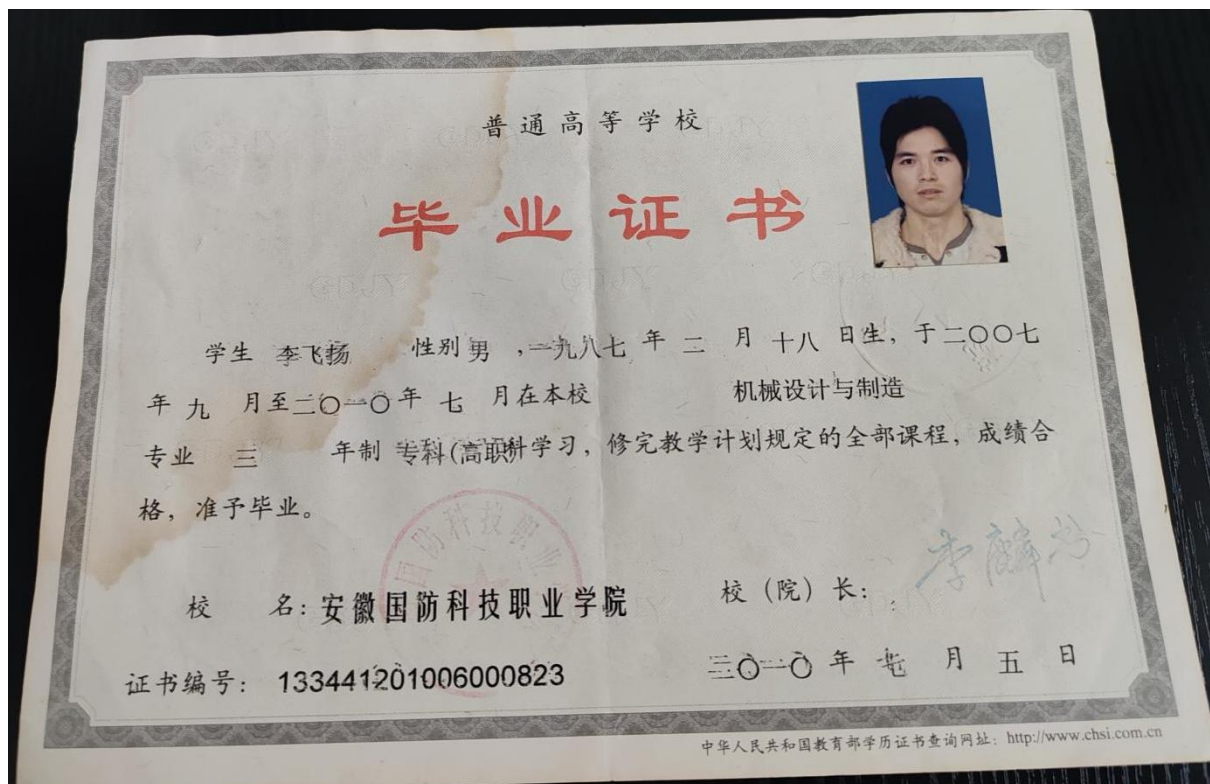 普通高等学校
毕业证书
学生 李飞扬 性别 男 ,一九八七 年 二 月 十八 日生，于二〇〇七
年 九 月至二〇一〇年 七 月在本校 机械设计与制造
专业 三 年制 专科(高职)学习，修完教学计划规定的全部课程，成绩合
格，准予毕业。
国防科技职业
校 名：安徽国防科技职业学院
校（院）长：
证书编号： 133441201006000823
二〇一〇 年 七 月 五 日
中华人民共和国教育部学历证书查询网址：http://www.chsi.com.cn